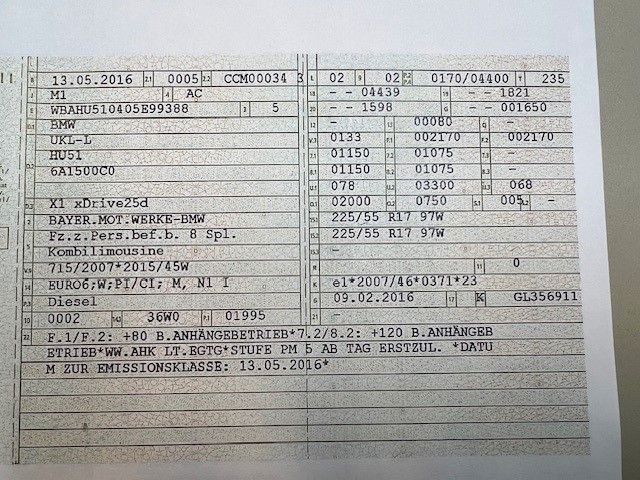 B 13.05.2016 2.1 0005 2.2 CCM00034 3 L 02 9 02 P.2 P.4 0170/04400 T 235
J M1 4 AC 18 - - 04439 19 - - 1821
E WBAHU510405E99388 3 5 20 - - 1598 G - - 001650
D.1 BMW 12 - 13 00080 Q -
UKL-L V.7 0133 F.1 002170 F.2 002170
D.2 HU51 7.1 01150 7.2 01075 7.3 -
6A1500C0 8.1 01150 8.2 01075 8.3 -
U.1 078 U.2 03300 U.3 068
D.3 X1 xDrive25d O.1 02000 O.2 0750 S.1 005 S.2 -
2 BAYER.MOT.WERKE-BMW 15.1 225/55 R17 97W
5 Fz.z.Pers.bef.b. 8 Spl. 15.2 225/55 R17 97W
Kombilimousine 15.3 -
V.9 715/2007*2015/45W R - 11 0
14 EURO6;W;PI/CI; M, N1 I K e1*2007/46*0371*23
P.3 Diesel 6 09.02.2016 17 K 16 GL356911
10 0002 14.1 36W0 P.1 01995 21 -
22 F.1/F.2: +80 B.ANHÄNGEBETRIEB*7.2/8.2: +120 B.ANHÄNGEB
ETRIEB*WW.AHK LT.EGTG*STUFE PM 5 AB TAG ERSTZUL. *DATU
M ZUR EMISSIONSKLASSE: 13.05.2016*